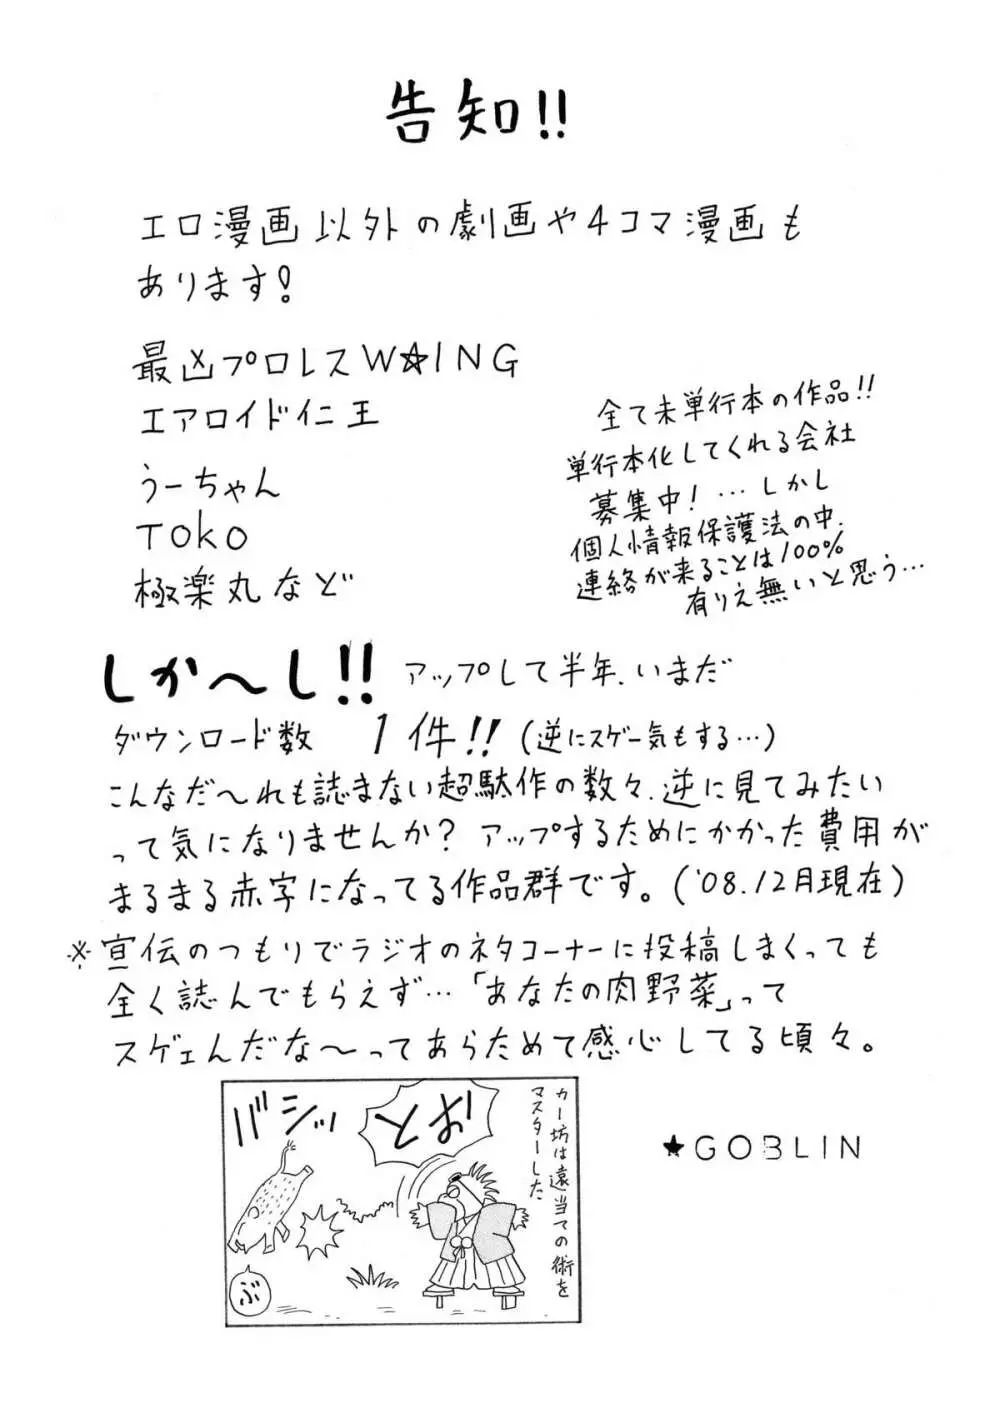 告知!!
エロ漫画以外の劇画や4コマ漫画も
あります!
最凶プロレスW★ING
エアロイド仁王
うーちゃん
TOKO
極楽丸など
全て未単行本の作品!!
単行本化してくれる会社
募集中!…しかし
個人情報保護法の中、
連絡が来ることは100%
有りえ無いと思う…
しか〜し!! アップして半年、いまだ
ダウンロード数 1件!!(逆にスゲー気もする…)
こんなだ〜れも読まない超駄作の数々、逆に見てみたい
って気になりませんか? アップするためにかかった費用が
まるまる赤字になってる作品群です。('08.12月現在)
※宣伝のつもりでラジオのネタコーナーに投稿しまくっても
全く読んでもらえず…「あなたの肉野菜」って
スゲェんだな〜ってあらためて感心してる頃々。
カー坊は遠当ての術を
マスターした
ばっと
バシッ
ぶ
★GOBLIN